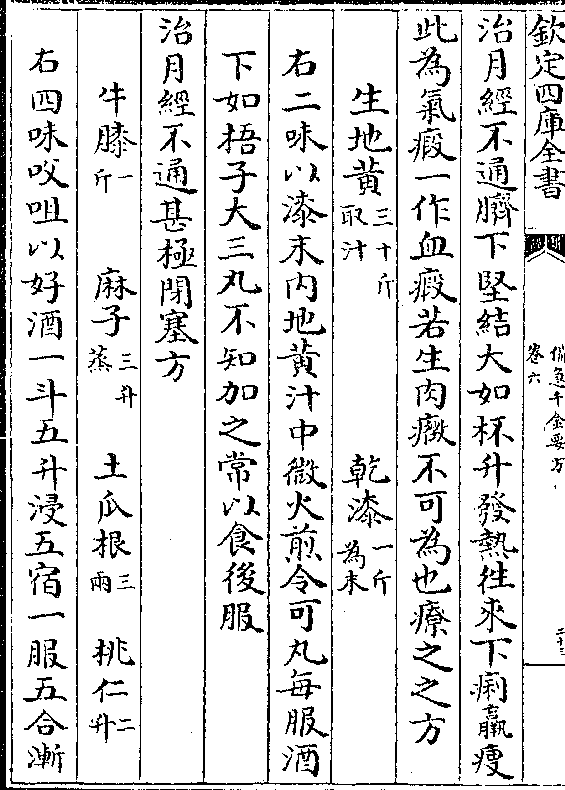 欽定四庫全書
備急千金要方
卷六
治月經不通臍下堅結大如杯升發熱徃來下痢羸瘦
此為氣瘕一作血瘕若生肉癥不可為也療之之方
生地黃三十斤取汁 乾漆一斤為末
右二味以漆末内地黃汁中微火煎令可丸每服酒
下如梧子大三丸不知加之常以食後服
治月經不通甚極閉塞方
牛膝一斤 麻子三升蒸 土瓜根三兩 桃仁二升
右四味㕮咀以好酒一斗五升浸五宿一服五合漸